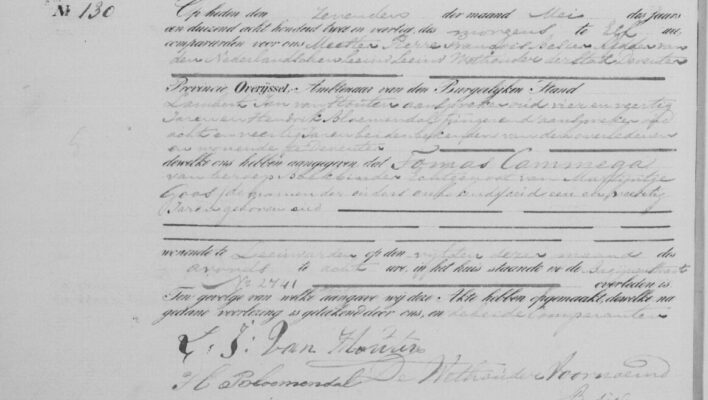 № 130
Op heden den Zevenden der maand Mei des jaars
een duizend acht honderd twee en veertig, des morgens te Elf ure
compareerden voor ons Meester Pierre
den Nederlandschen Leeuw Wethouder der stad Deventer
Provincie Overijssel, Ambtenaar van den Burgerlijken Stand
Lambert Jan van Houten aanspreker oud vier en veertig
Jaren en Hendrik Bloemendal aanspreker oud
acht en veertig Jaren beiden bekenden van de overledenen
en wonende te Deventer
dewelke ons hebben aangegeven dat Tomas Cammega
van beroep boekbinder Echtgenoot van
Goas, de namen der ouders onbekend oud een en
Jaren geboren en
wonende te Leeuwarden op den vyfden dezer maand des
avonds te acht ure, in het huis staande in de
No 2741 overleden is
Ten gevolge van welke aangave wy deze Akte hebben opgemaakt, dewelke na
gedane voorlezing is geteekend door ons, en de beide Comparanten
L: J: Van Houten
H Bloemendal De Wethouder Voornoemd